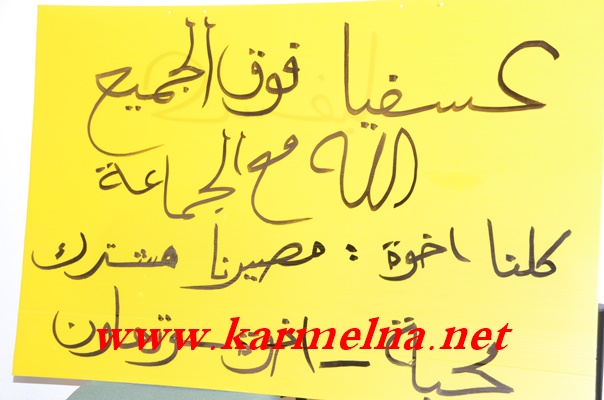 عسفيا فوق الجميع
الله مع الجماعة
كلنا اخوة : مصيرنا مشترك
محبة _ اخوة _ تعاون
www.karmelna.net